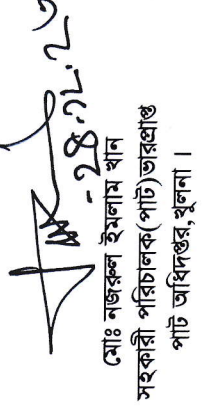 মোঃ নজরুল ইসলাম খান
সহকারী পরিচালক(পাট)ভারপ্রাপ্ত
পাট অধিদপ্তর,খুলনা।